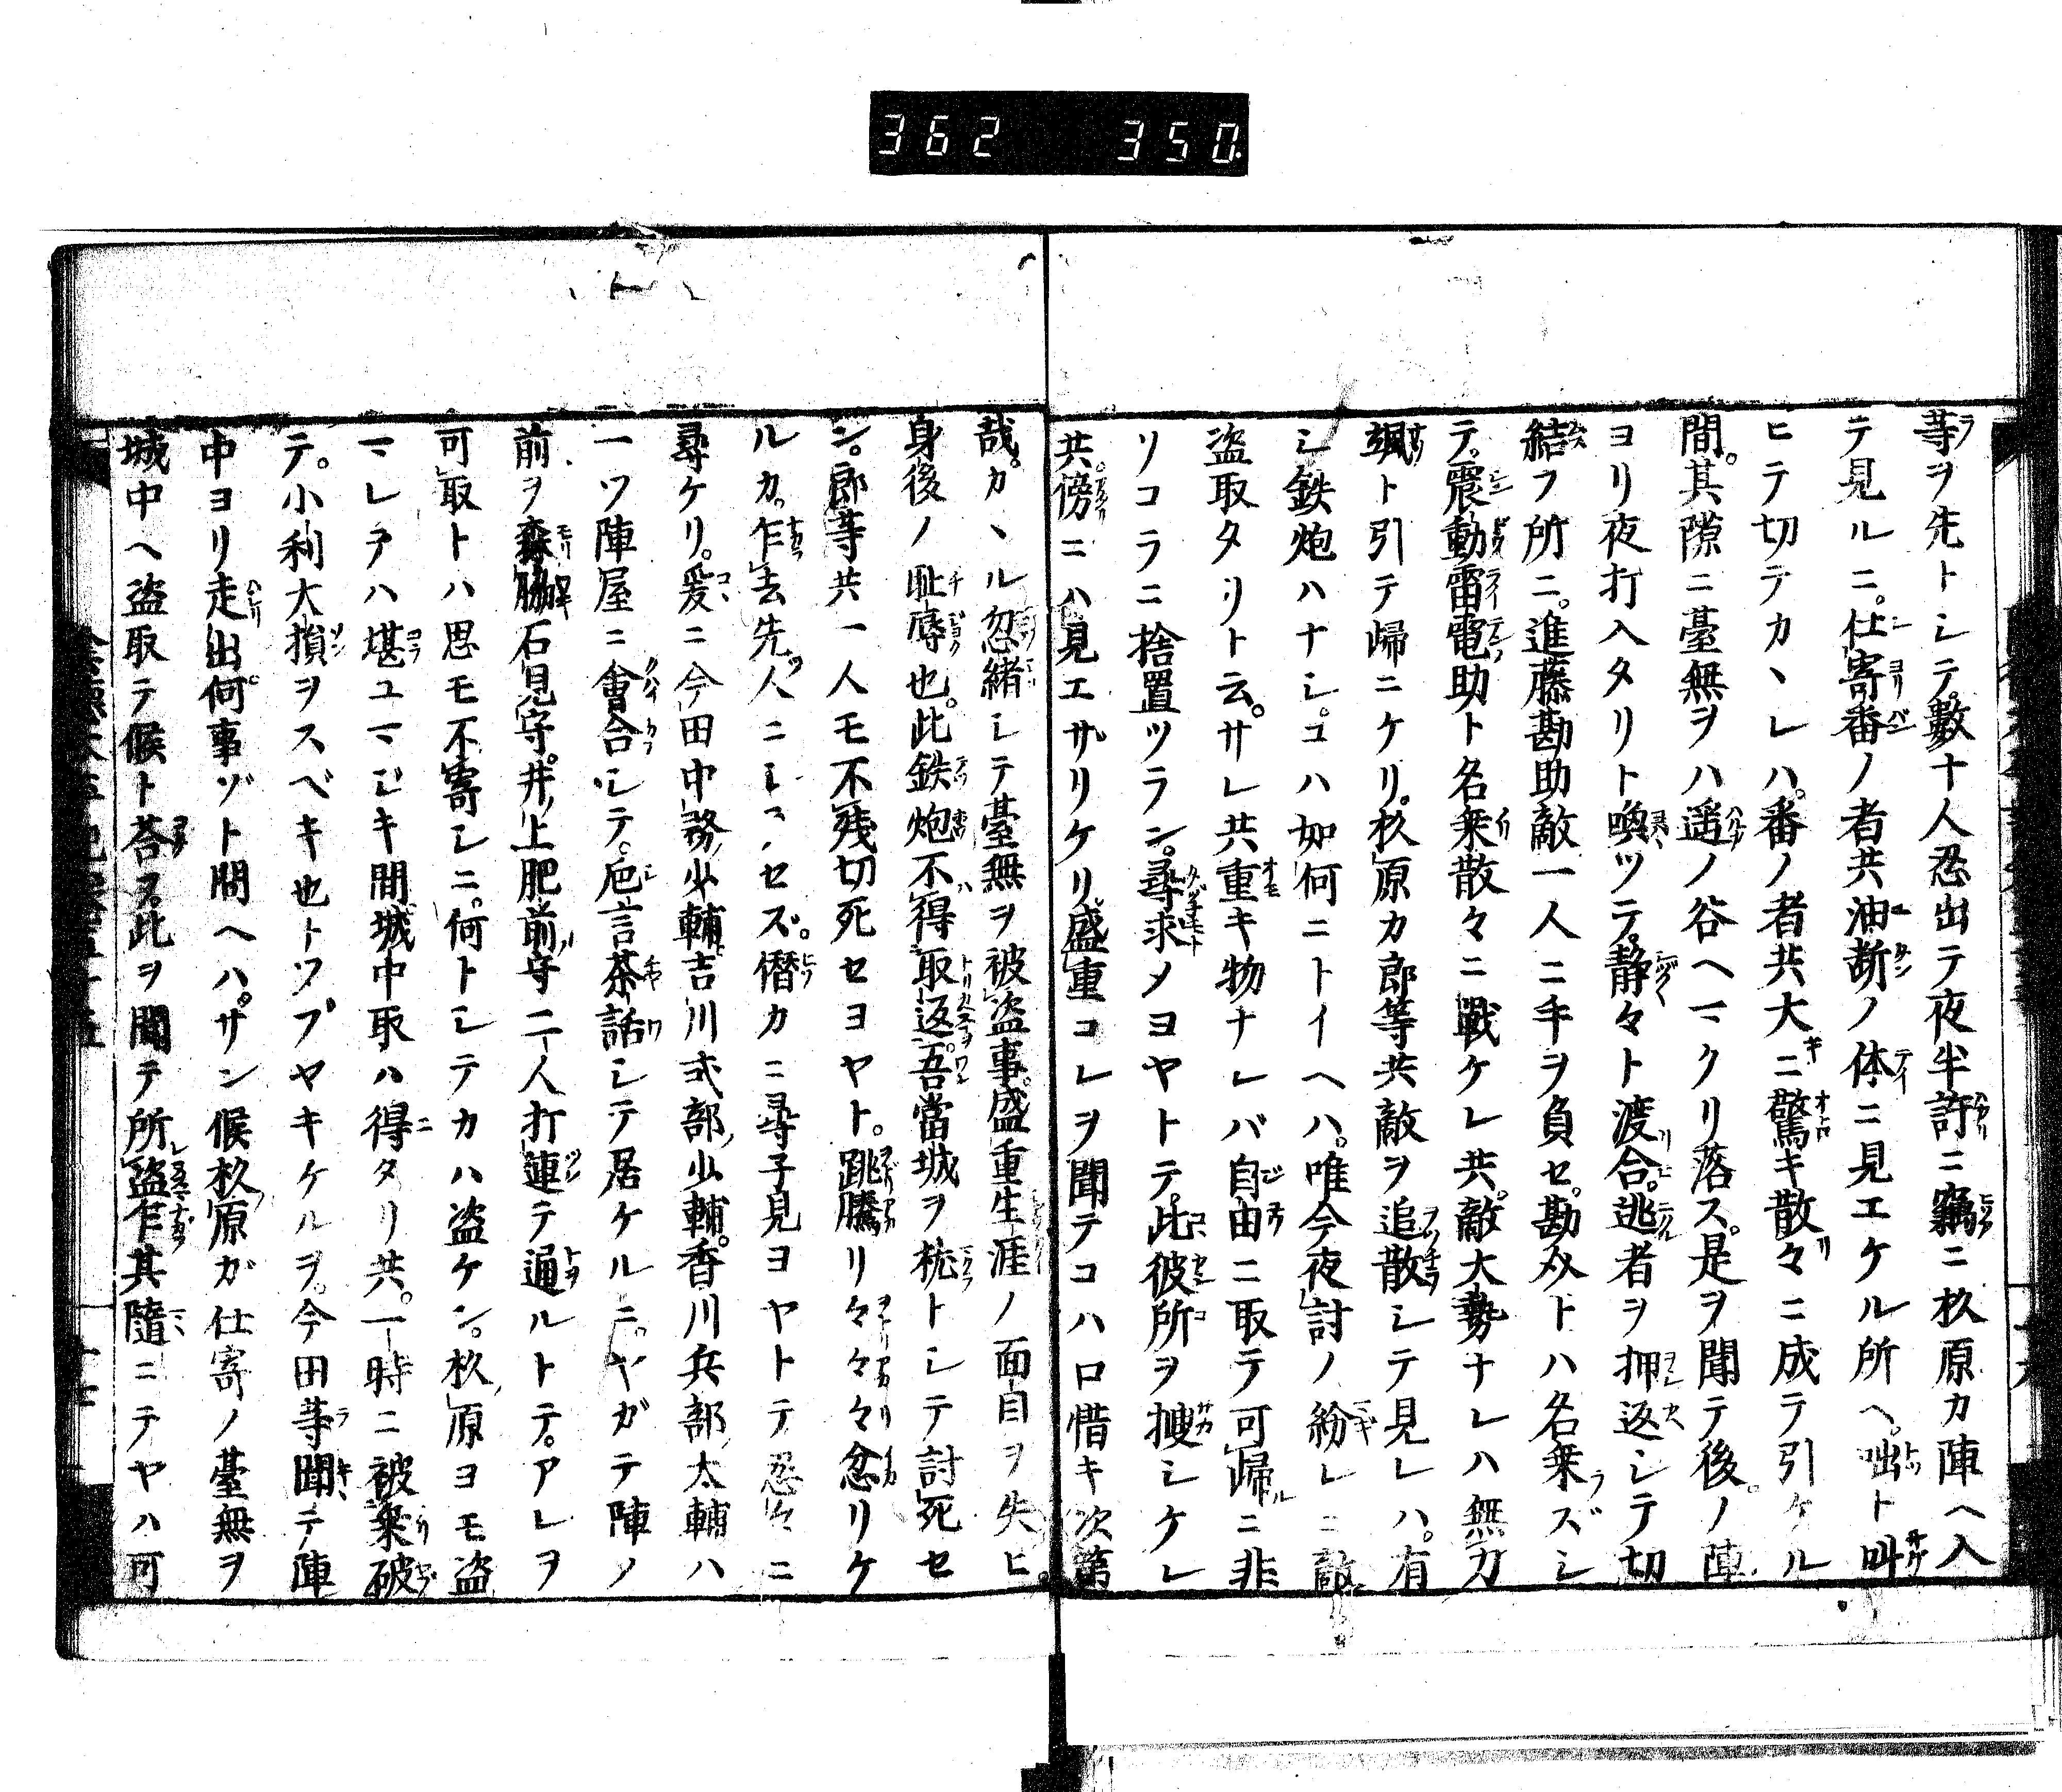 362 350.
等ヲ先トシテ。數十人忍出テ夜半許ニ竊ニ杦原カ陣ヘ入
テ見ルニ。仕寄番ノ者共油断ノ体ニ見エケル所ヘ。咄ト叫
ヒテ切テカヽレハ。番ノ者共大ニ驚キ散々ニ成テ引ケル
間。其隙ニ臺無ヲハ遥ノ谷ヘマクリ落ス。是ヲ聞テ後ノ陣
ヨリ夜打入タリト喚ツテ。静々ト渡合。逃者ヲ押返シテ切
結フ所ニ。進藤勘助敵一人ニ手ヲ負セ。勘介トハ名乗ズシ
テ。震動雷電助ト名乗散々ニ戰ケレ共。敵大勢ナレハ無力
颯ト引テ帰ニケリ。杦原カ郎等共敵ヲ追散シテ見レハ。有
シ鉄炮ハナシ。コハ如何ニトイヘハ。唯今夜討ノ紛レニ敵
盗取タリト云。サレ共重キ物ナレバ自由ニ取テ可帰ニ非
ソコラニ捨置ツラン。尋求メヨヤトテ。此彼所ヲ搜シケレ
共。傍ニハ見エサリケリ。盛重コレヲ聞テコハ口惜キ次第
哉。カヽル忽緒シテ臺無ヲ被盗事。盛重生涯ノ面目ヲ失ヒ。
身後ノ耻辱也。此鉄炮不得取返。吾當城ヲ枕トシテ討死セ
ン。郎等共一人モ不残切死セヨヤト。跳騰リ々々々忿リケ
ルカ。乍去先人ニシラセズ。僭カニ尋子見ヨヤトテ忍々ニ
尋ケリ。爰ニ今田中務少輔吉川式部少輔。香川兵部太輔ハ
一ツ陣屋ニ會合シテ。巵言茶話シテ居ケルニ。ヤガテ陣ノ
前ヲ森脇石見守。井上肥前守二人打連テ通ルトテ。アレヲ
可取トハ思モ不寄シニ。何トシテカハ盗ケン。杦原ヨモ盗
マレテハ堪ユマジキ間城中取ハ得タリ共。一時ニ被乗破
テ。小利大損ヲスベキ也トツブヤキケルヲ。今田等聞テ陣
中ヨリ走出何事ゾト問ヘハ。サン候杦原ガ仕寄ノ臺無ヲ
城中ヘ盗取テ候ト荅ヌ。此ヲ聞テ所盗乍其隨ニテヤハ可